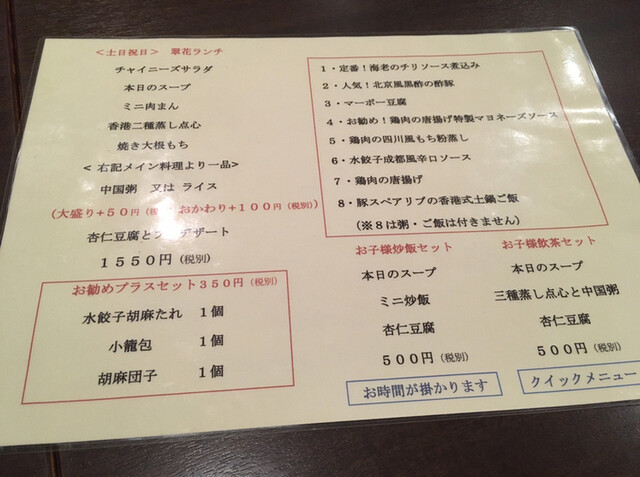 <土日祝日> 翠花ランチ
チャイニーズサラダ
本日のスープ
ミニ肉まん
香港二種蒸し点心
焼き大根もち
<右記メイン料理より一品>
中国粥 又は ライス
(大盛り+50円(税 おかわり+100円(税別)
杏仁豆腐と デザート
1550円(税別)
お勧めプラスセット350円(税別)
水餃子胡麻たれ 1個
小籠包 1個
胡麻団子 1個
1・定番!海老のチリソース煮込み
2・人気!北京風黒酢の酢豚
3・マーボー豆腐
4・お勧め!鶏肉の唐揚げ特製マヨネーズソース
5・鶏肉の四川風もち粉蒸し
6・水餃子成都風辛口ソース
7・鶏肉の唐揚げ
8・豚スペアリブの香港式土鍋ご飯
(※8は粥・ご飯は付きません)
お子様炒飯セット
本日のスープ
ミニ炒飯
杏仁豆腐
500円(税別)
お時間が掛かります
お子様飲茶セット
本日のスープ
三種蒸し点心と中国粥
杏仁豆腐
500円(税別)
クイックメニュー